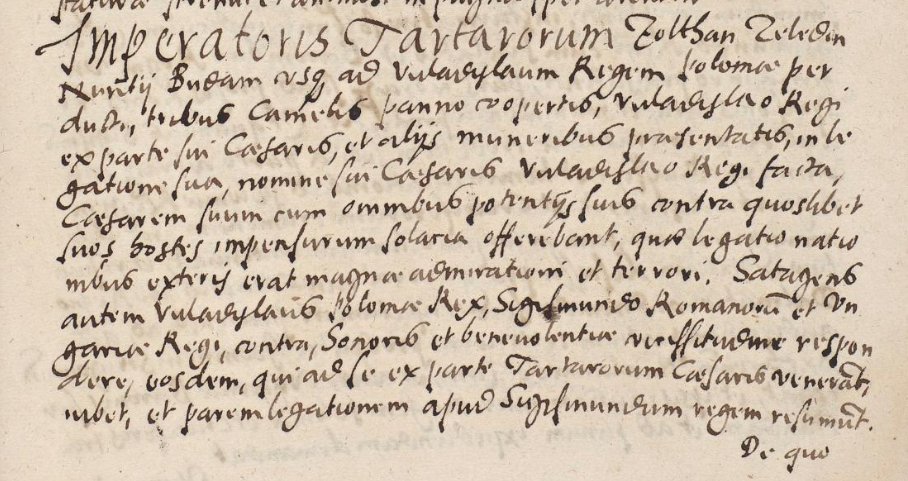 Imperatoris Tartarorum Zolthan Zeledin
Nuntij Budam usq ad Vuladyslaum Regem Poloniæ per
ducti, tribus Camelis panno coopertis, Vuladislao Regi
ex parte sui Cæsaris, et alijs muneribus præsentatis, in le
gatione sua, nomine sui Cæsaris Vuladislao Regi facta,
Cæsarem suum cum omnibus potentijs suis contra quoslibet
suos hostes impensurum solacia offerebant, quæ legatio natio
nibus exteris erat magnæ admirationi et terrori. Satagens
autem Vuladyslaus Poloniæ Rex, Sigismundo Romanorū et Un
gariæ Regi, contra, honoris et benevolentiæ vicissitudine respon
dere, eosdem, qui ad se ex parte Tartarorum Cæsaris venerāt,
iubet, et parem legationem apud Sigismundum regem resumūt.
De quo